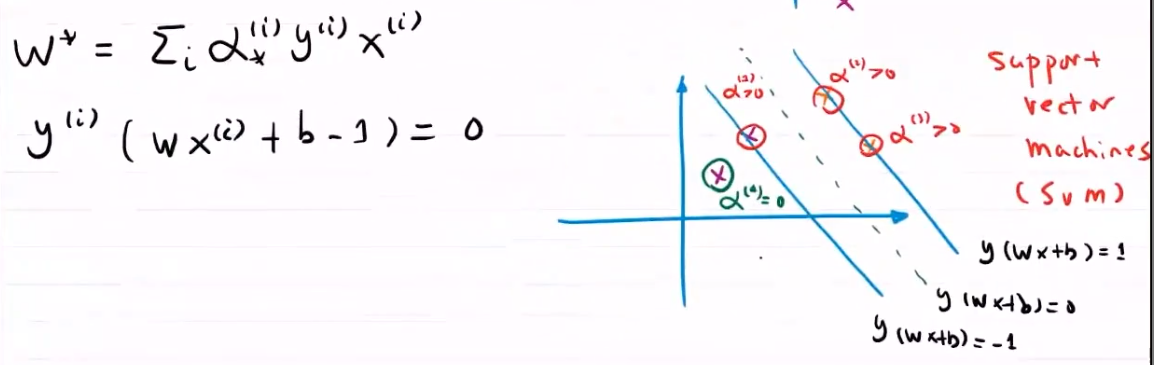 w* = Σᵢ α*⁽ⁱ⁾ y⁽ⁱ⁾ x⁽ⁱ⁾
y⁽ⁱ⁾ ( w x⁽ⁱ⁾ + b - 1 ) = 0
α >0
α⁽¹⁾ >0
α⁽³⁾ >0
α⁽⁴⁾ = 0
Support
vector
machines
(SVM)
y (wx+b) = 1
y (wx+b) = 0
y (wx+b) = -1